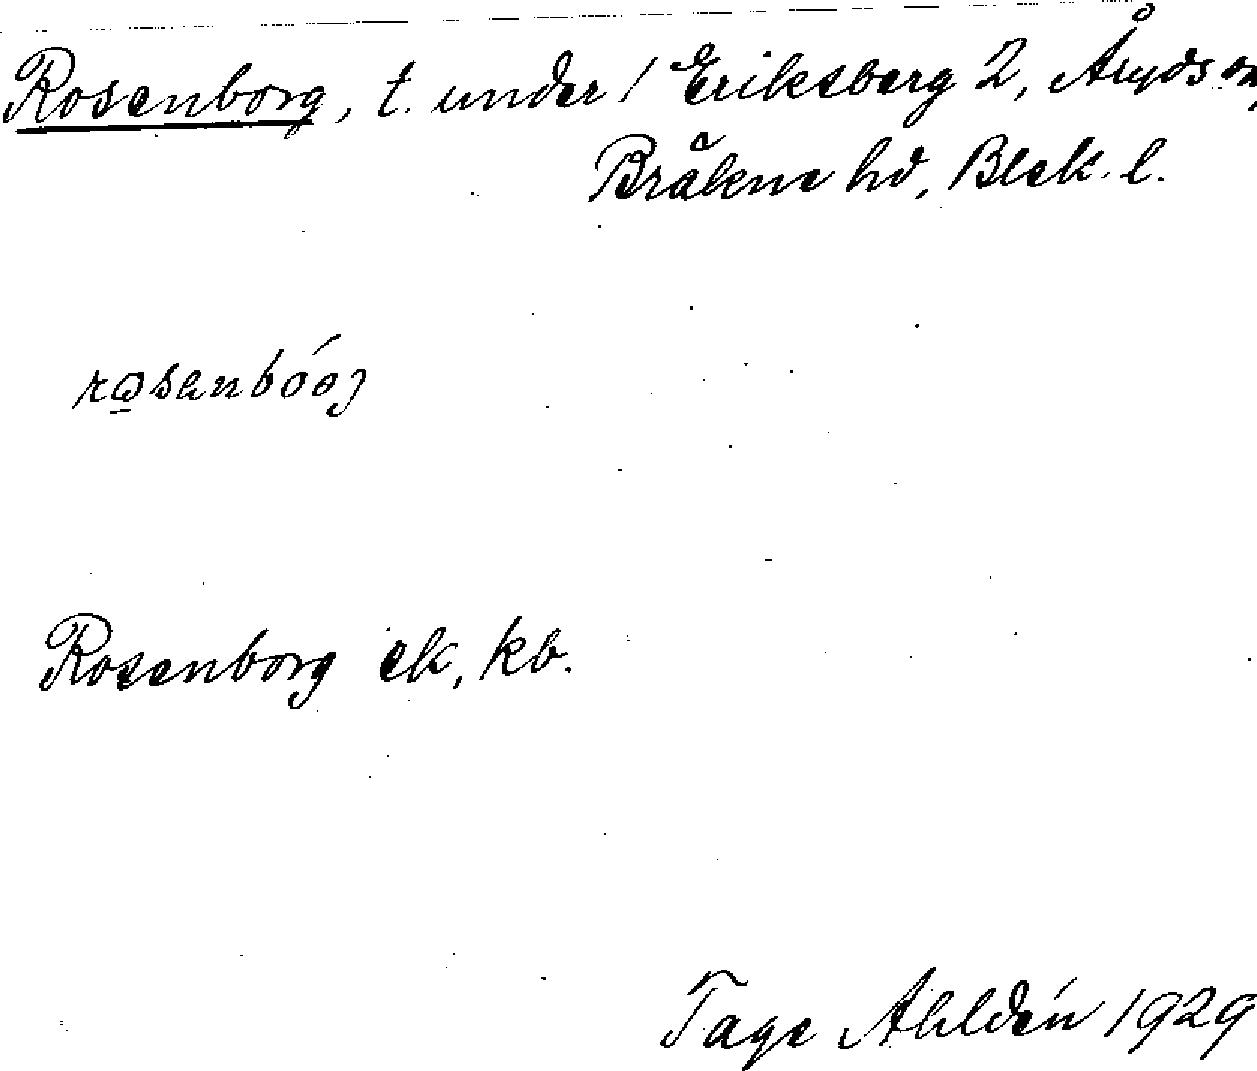 Rosenborg, t. under 1 Eriksberg 2, Åryds sn,
Bräkne hd, Blek. l.
Rosenborg ek, kb.
Tage Ahldén 1929